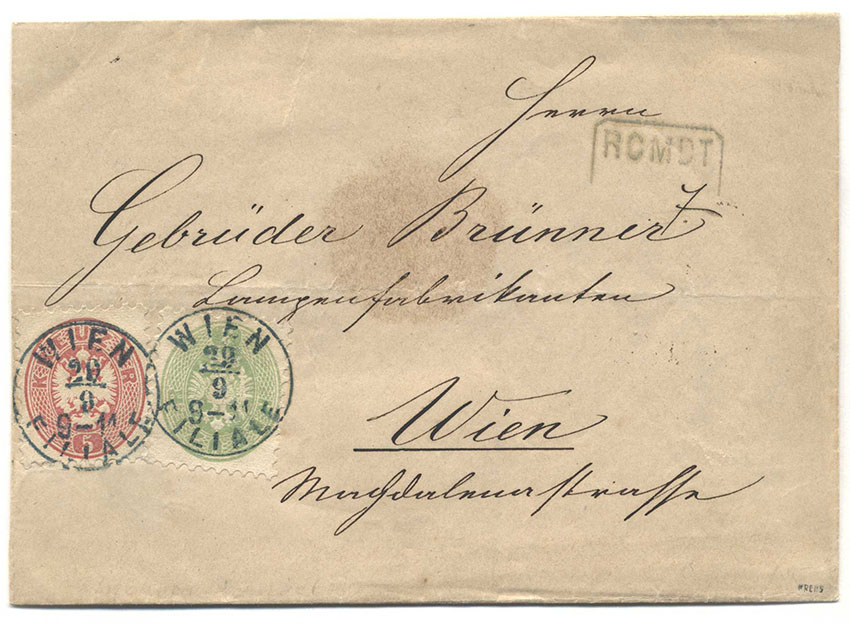 Herrn
RCMDT
Gebrüder Brünner
Lampenfabrikanten
WIEN
29
9
9-11
FILIALE
KREUZER
5
WIEN
29
9
9-11
FILIALE
Wien
Magdalenastrasse
KREUS